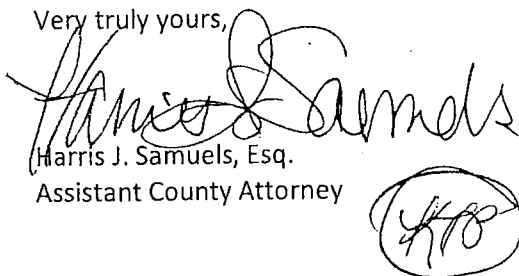 Very truly yours,
Harris J Samuels
Harris J. Samuels, Esq.
Assistant County Attorney